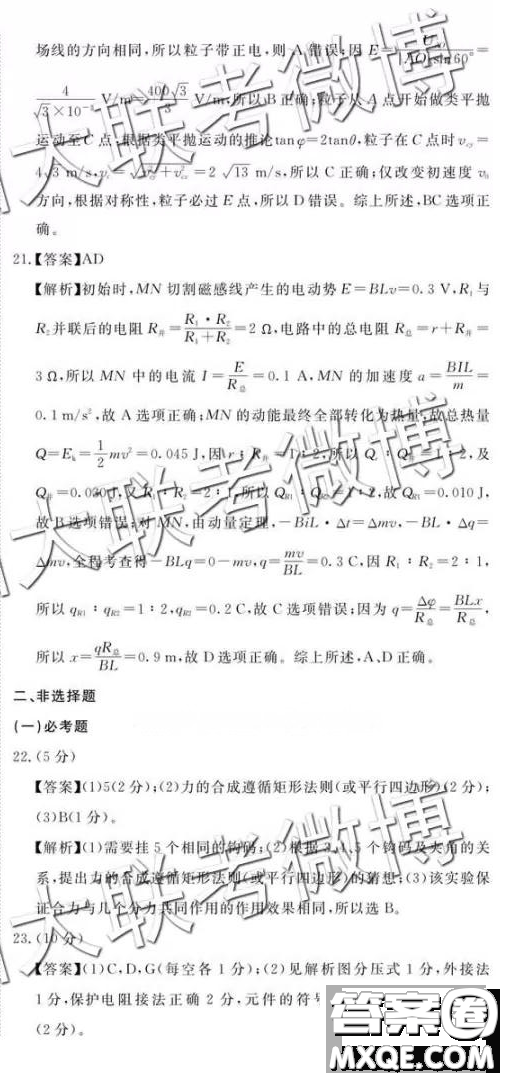 场线的方向相同,所以粒子带正电,则 A 错误;因 E= =
4/(√3×10⁻²) V/m=400√3/3 V/m,所以 B 正确;粒子从 A 点开始做类平抛
运动至 C 点,根据类平抛运动的推论tanφ=2tanθ,粒子在 C 点时 v_cy=
4√3 m/s,v_c=√(v_cy²+v_cx²)=2√13 m/s,所以 C 正确;仅改变初速度 v₀
方向,根据对称性,粒子必过 E 点,所以 D 错误。综上所述,BC 选项正
确。
21.【答案】AD
【解析】初始时,MN 切割磁感线产生的电动势 E=BLv=0.3 V,R₁与
R₂并联后的电阻 R并=R₁·R₂/(R₁+R₂)=2 Ω,电路中的总电阻 R总=r+R并=
3 Ω,所以 MN 中的电流 I=E/R总=0.1 A,MN 的加速度 a=BIL/m=
0.1 m/s²,故 A 选项正确;MN 的动能最终全部转化为热量,故总热量
Q=E_k=½mv²=0.045 J,因 r∶R并=1∶2,所以 Q_r∶Q并=1∶2,及
Q并=0.030 J,又 R₁∶R₂=2∶1,所以 Q_R1∶Q_R2=1∶2,故 Q_R1=0.010 J,
故 B 选项错误;对 MN,由动量定理,-BiL·Δt=Δmv,-BL·Δq=
Δmv,全程考查得-BLq=0-mv,q=mv/BL=0.3 C,因 R₁∶R₂=2∶1,
所以 q_R1∶q_R2=1∶2,q_R2=0.2 C,故 C 选项错误;因为 q=Δφ/R总=BLx/R总,
所以 x=qR总/BL=0.9 m,故 D 选项正确。综上所述,A、D 正确。
二、非选择题
(一)必考题
22.(5 分)
【答案】(1)5(2 分);(2)力的合成遵循矩形法则(或平行四边形)(2 分);
(3)B(1 分)。
【解析】(1)需要挂 5 个相同的钩码;(2)根据 3、4、5 个钩码及夹角的关
系,提出力的合成遵循矩形法则(或平行四边形)的猜想;(3)该实验保
证合力与几个分力共同作用的作用效果相同,所以选 B。
23.(10 分)
【答案】(1)C,D,G(每空各 1 分);(2)见解析图分压式 1 分,外接法
1 分,保护电阻接法正确 2 分,元件的符号
(2 分)。
大联考微博
大联考微博
大联考微博
答案圈
MXQE.COM